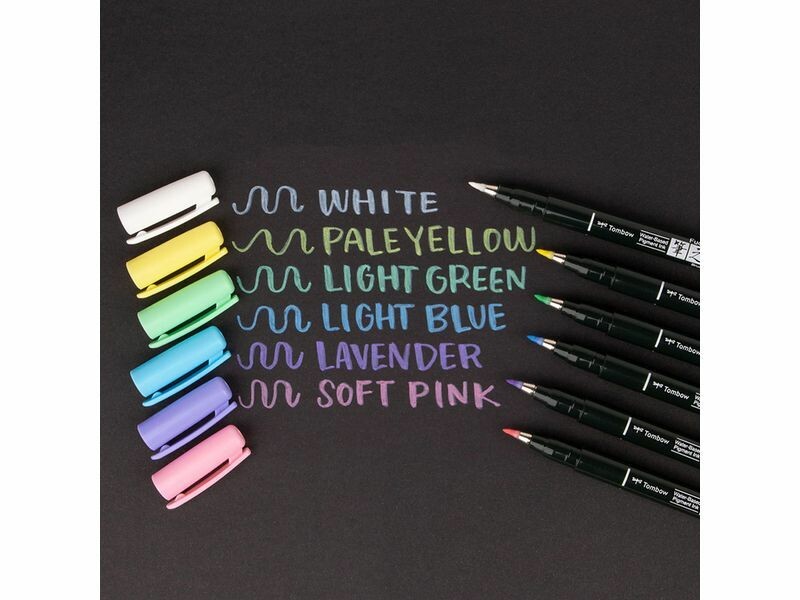 WHITE
PALE YELLOW
LIGHT GREEN
LIGHT BLUE
LAVENDER
SOFT PINK
Tombow
Water-Based
Pigment Ink
Tombow
Tombow
Tombow
Tombow
Water-Based
Pigment Ink
Tombow
Water-Based
Pigment Ink